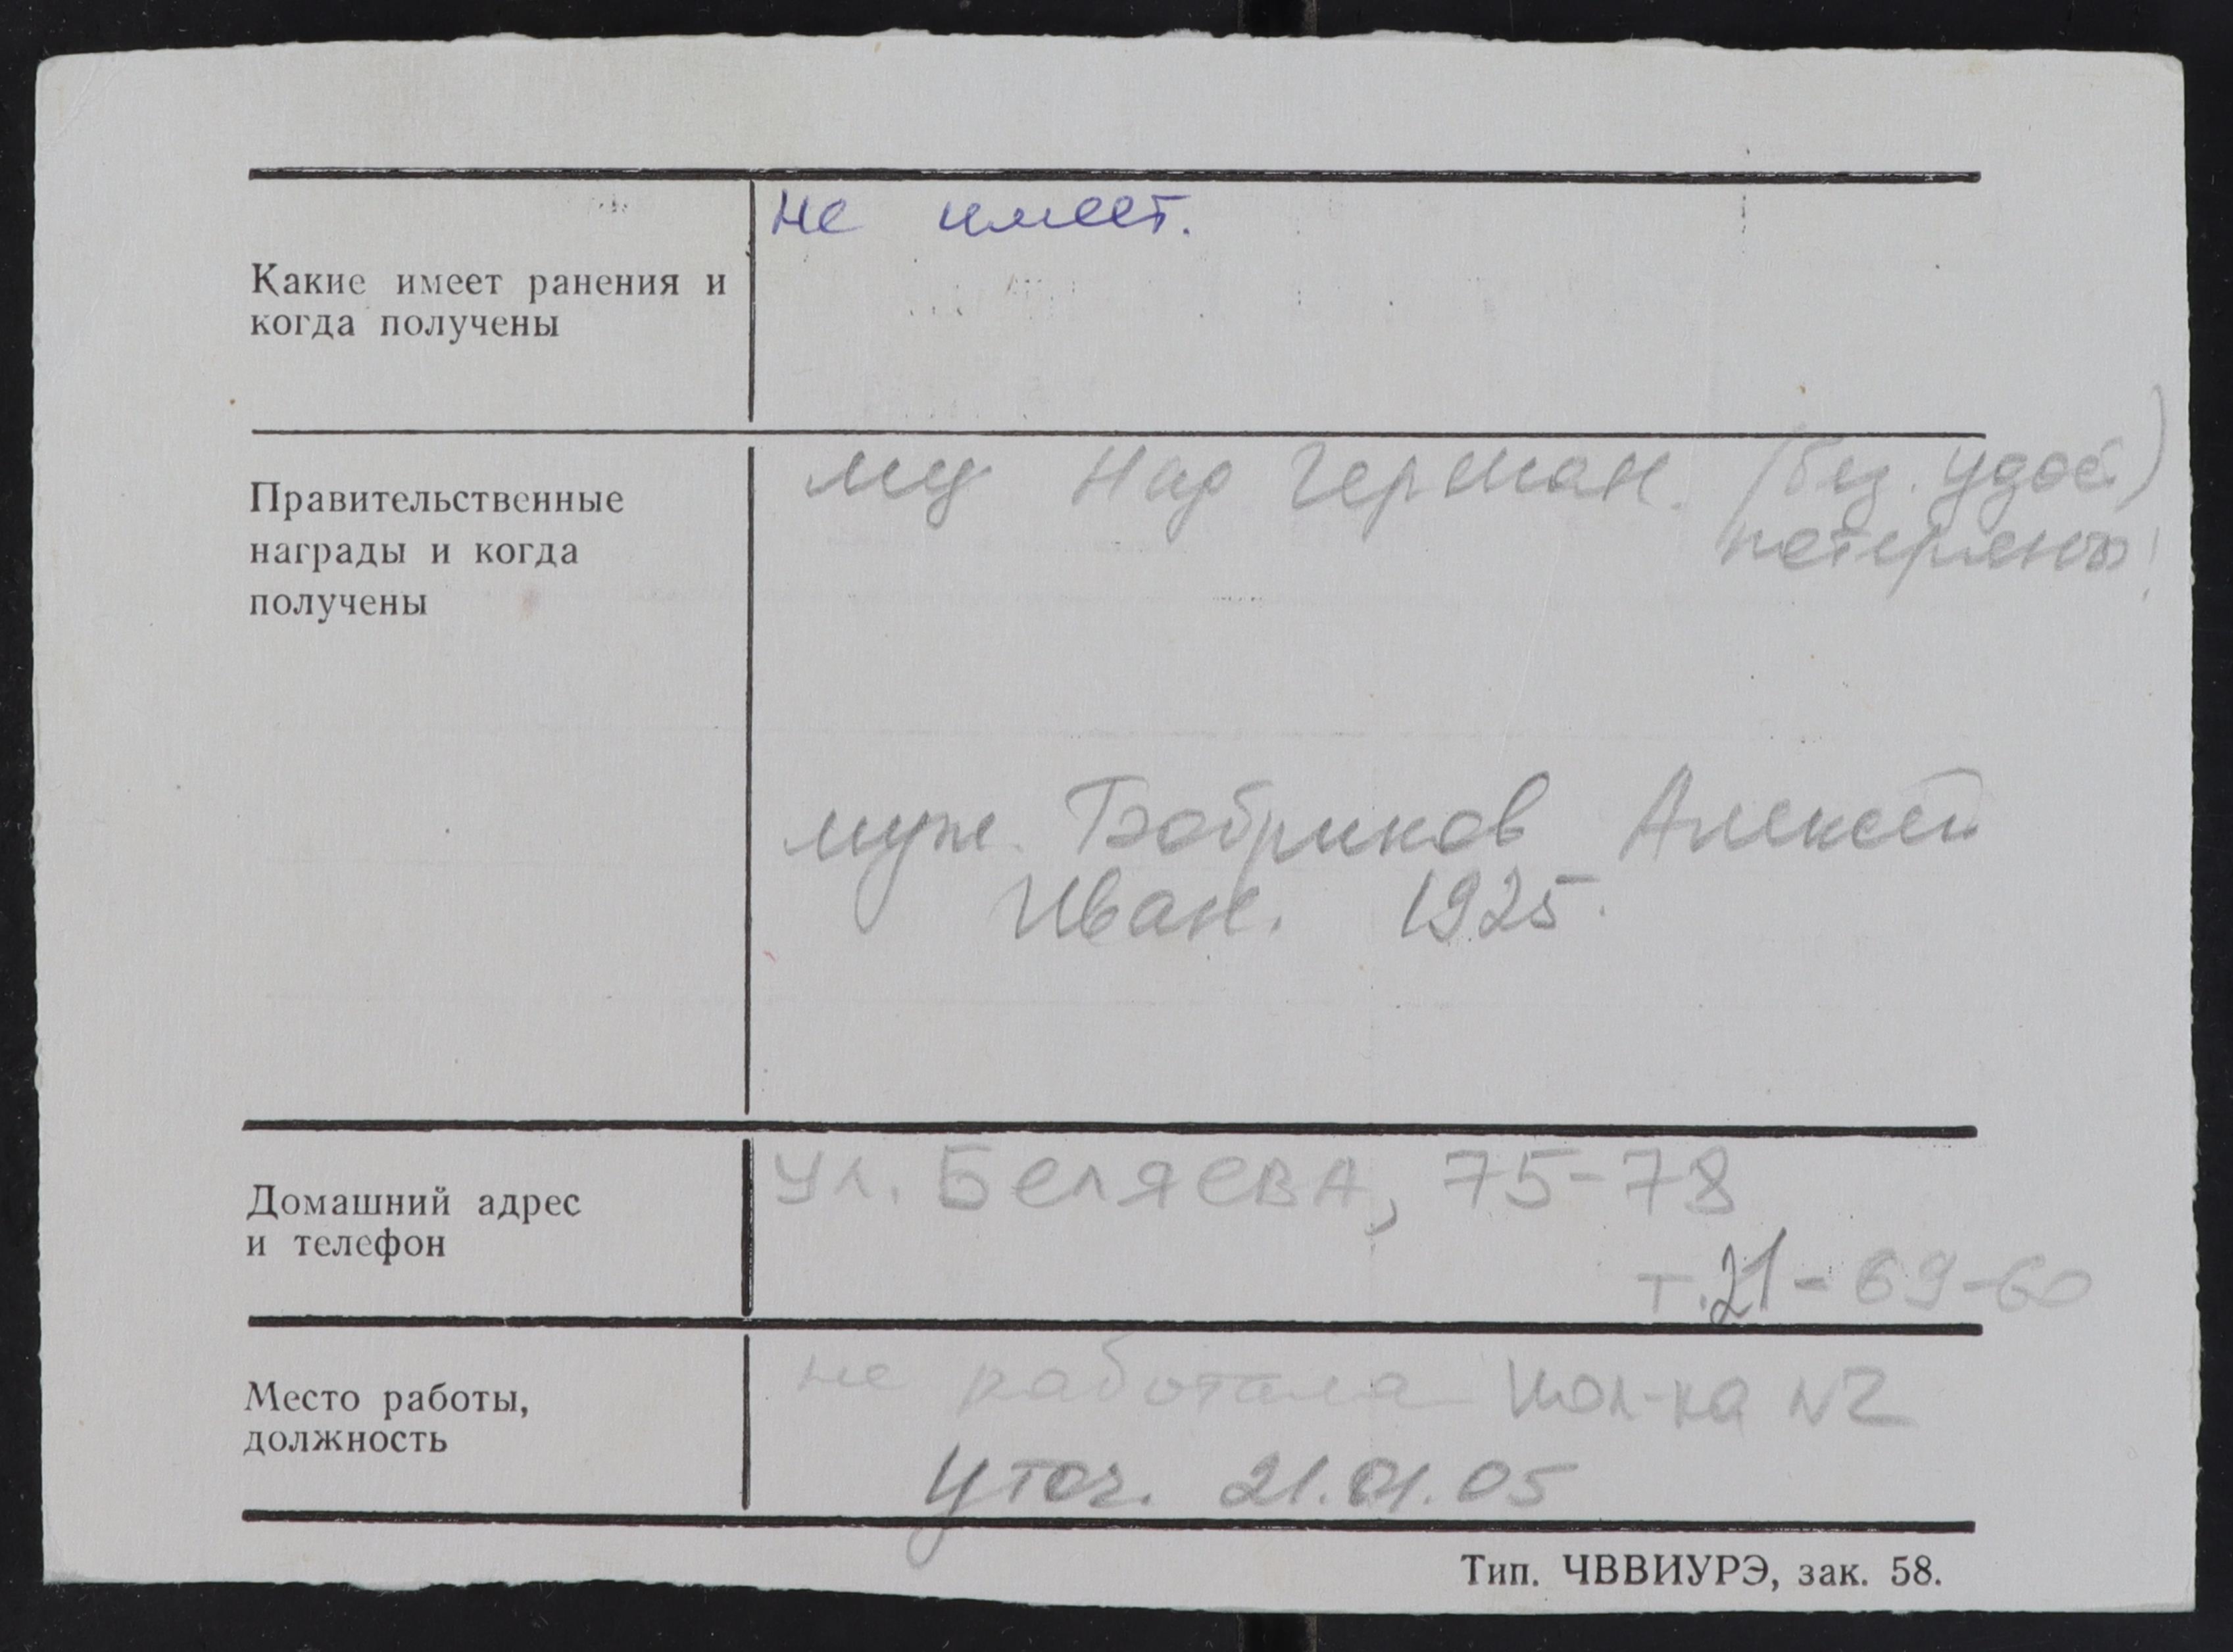 не имеет.
Какие имеет ранения и
когда получены
Правительственные
награды и когда
получены
му над Герман. (без. удос)
потеряны!
муж. Бобриков Алексей
Иван. 1925.
Домашний адрес
и телефон
ул. Беляева, 75-78
т. 21-69-60
Место работы,
должность
не работала пол-ка №2
Уточ. 21.01.05
Тип. ЧВВИУРЭ, зак. 58.